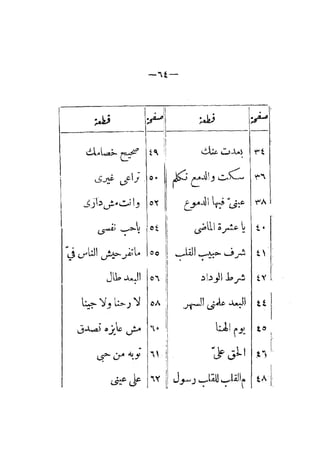 —٦٤—
صفحة قطعة صفحة قطعة
٣٤ بعدت عنك ٤٩ صحيح خصامك
٣٦ سكت والدمع تكلم ٥٠ تراعى غيرى
٣٨ عينىّ فيها الدموع ٥٢ وانت مش دارى
٤٠ يا عشرة الماضى ٥٤ ياحب نفسى
٤١ شرف حبيب القلب ٥٥ ماتفرحيش الناس فىّ
٤٢ شرط الوداد ٥٦ البعد طال
٤٤ البعد علمنى السهر ٥٨ لا رحنا ولا جينا
٤٥ يوم الهنا ٦٠ مش عايزه تصدق
٤٦ الحق علىّ ٦١ توبه من حبى
٤٨ م القلب للقلب رسول ٦٢ على عينى